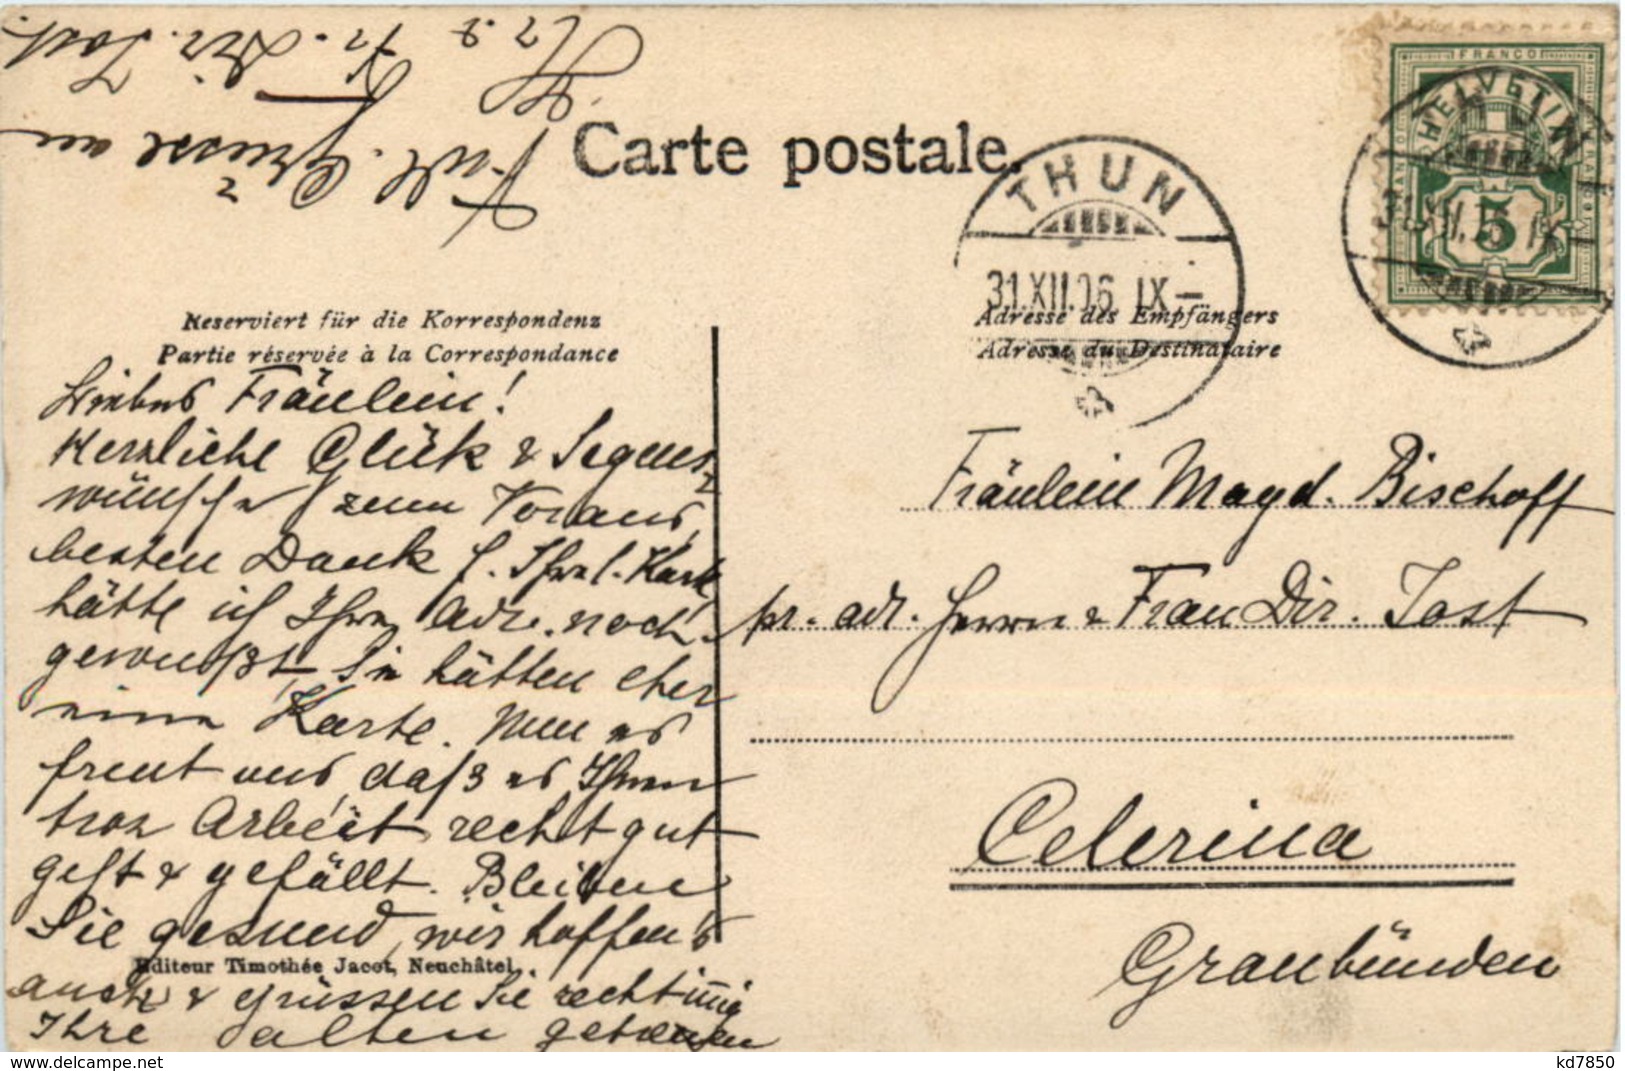 Frdl. Grüsse an
Hr. & Fr. Dir. Tost.
Carte postale.
FRANCO
HELVETIA
5
THUN
31.XII.06 IX–
31.XII.06 IX–
Reserviert für die Korrespondenz
Partie réservée à la Correspondance
Adresse des Empfängers
Adresse du Destinataire
Liebes Fräulein!
Herzliche Glück & Segens-
wünsche zum Voraus,
besten Dank f. Ihre l. Karte
hätte ich Ihre Adr. noch
gewußt, Sie hätten eher
eine Karte. Nun es
freut uns, daß es Ihnen
troz Arbeit recht gut
geht & gefällt. Bleiben
Sie gesund, wir hoffen's
auch & grüssen Sie recht innig
Ihre alten getreuen
Editeur Timothée Jacot, Neuchâtel.
Fräulein Magd. Bischoff
pr. adr. Herrn & Frau Dir. Tost
Celerina
Graubünden
www.delcampe.net
kd7850